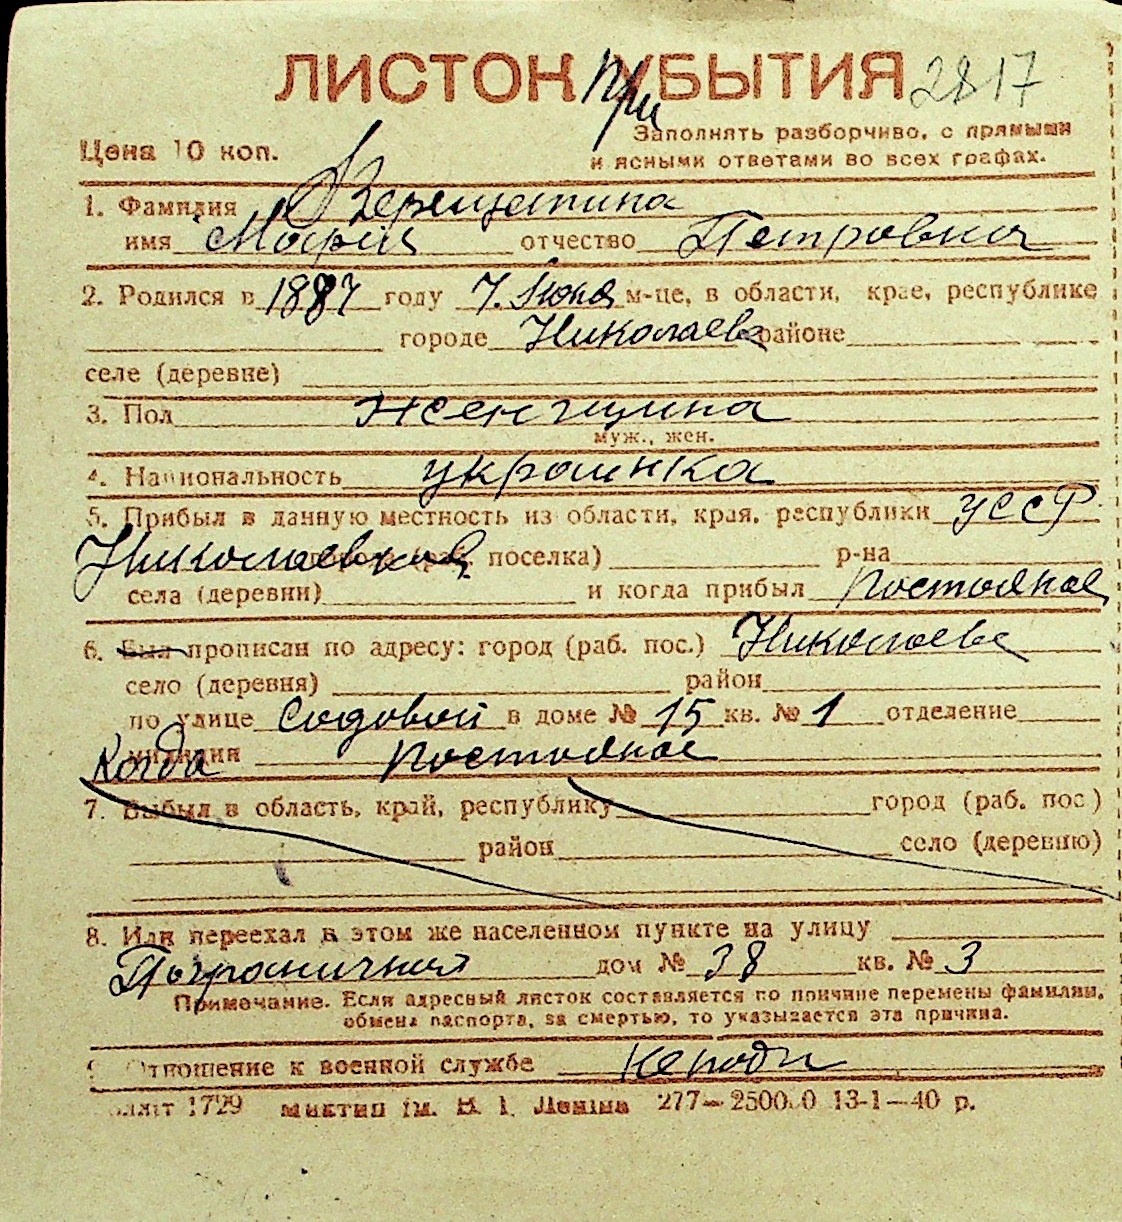 ЛИСТОК При УБЫТИЯ 2817
Цена 10 коп.
Заполнять разборчиво, с прямыми
и ясными ответами во всех графах.
1. Фамилия Верещагина
имя Мария отчество Петровна
2. Родился в 1887 году 7. Июня м-це, в области, крае, республике
городе Николаеве районе
селе (деревне)
3. Пол женщина
муж., жен.
4. Национальность украинка
5. Прибыл в данную местность из области, края, республики УССР
Николаевская поселка) р-на
села (деревни) и когда прибыл постояное
6. Был прописан по адресу: город (раб. пос.) Николаеве
село (деревня) район
по улице Садовой в доме № 15 кв. № 1 отделение
милиции Когда постояное
7. Выбыл в область, край, республику город (раб. пос)
район село (деревню)
8. Или переехал в этом же населенном пункте на улицу
Пограничная дом № 38 кв. № 3
Примечание. Если адресный листок составляется по причине перемены фамилии,
обмена паспорта, за смертью, то указывается эта причина.
Отношение к военной службе
1729 им. В. І. Леніна 277—25000 13-1—40 р.